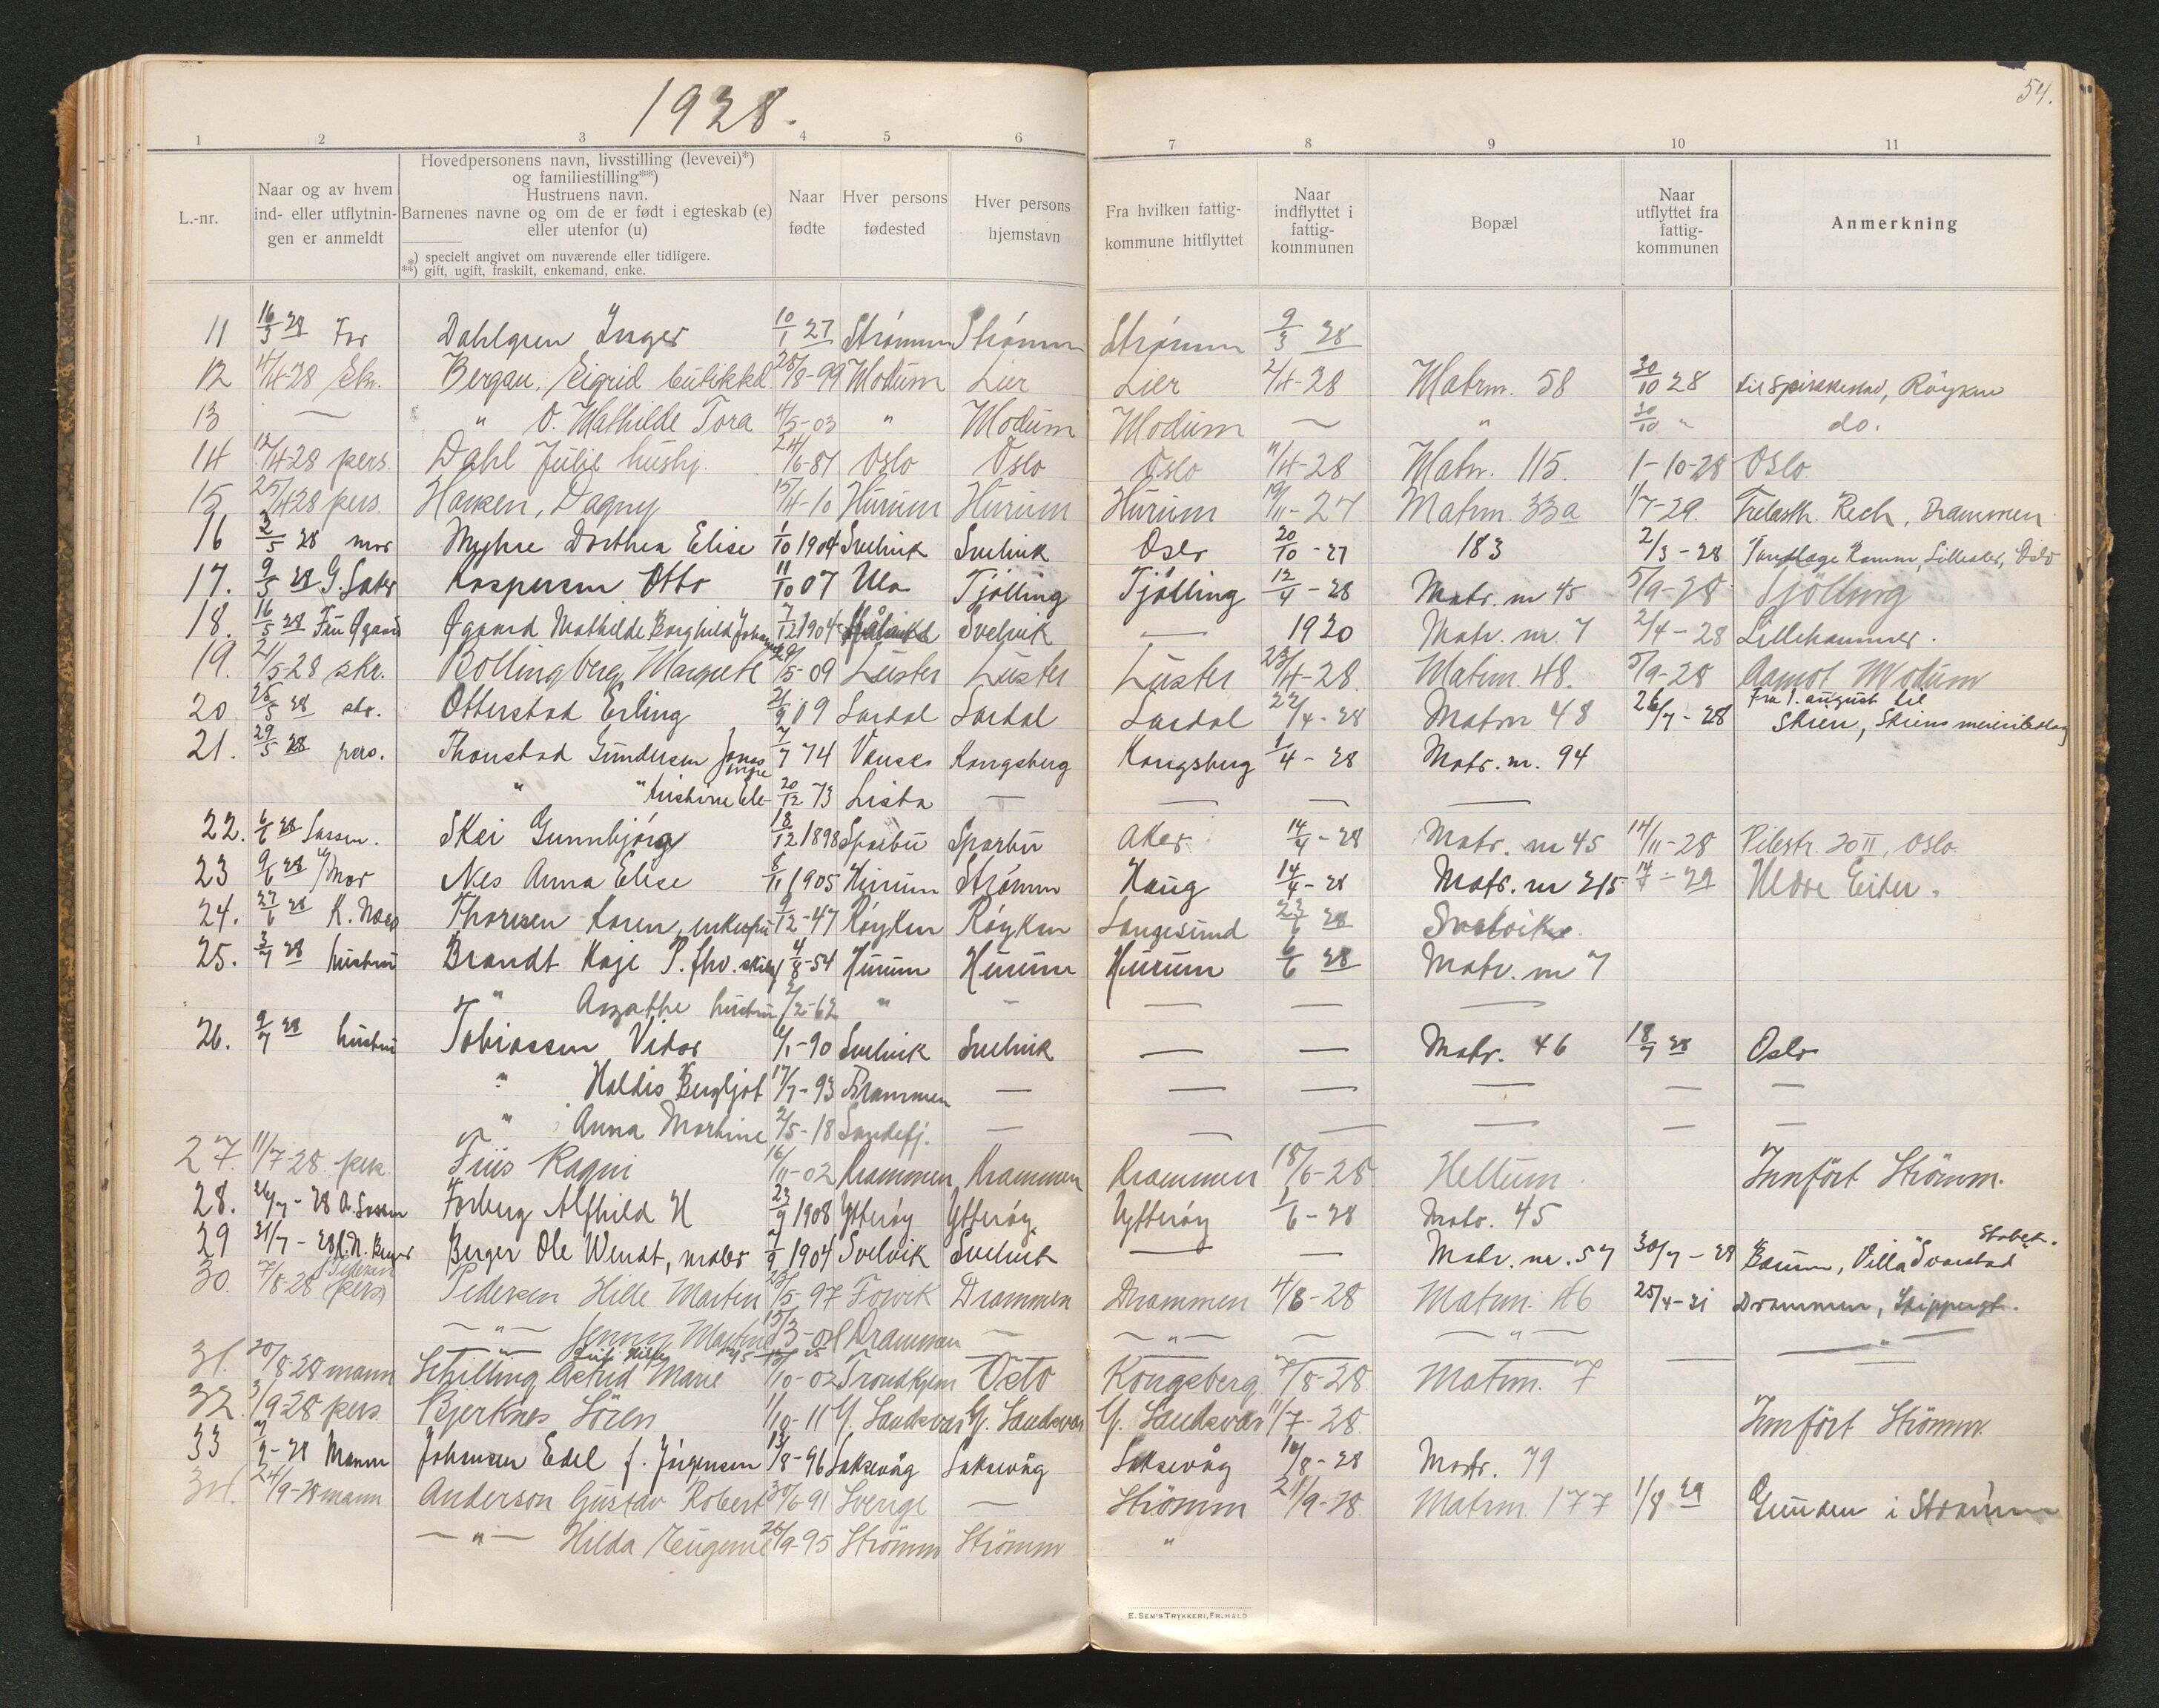 1928.
54.
1 2 3 4 5 6 7 8 9 10 11
L.-nr.
Naar og av hvem
ind- eller utflytnin-
gen er anmeldt
Hovedpersonens navn, livsstilling (levevei)*)
og familiestilling**)
Hustruens navn.
Barnenes navne og om de er født i egteskab (e)
eller utenfor (u)
*) specielt angivet om nuværende eller tidligere.
**) gift, ugift, fraskilt, enkemand, enke.
Naar
fødte
Hver persons
fødested
Hver persons
hjemstavn
Fra hvilken fattig-
kommune hitflyttet
Naar
indflyttet i
fattig-
kommunen
Bopæl
Naar
utflyttet fra
fattig-
kommunen
Anmerkning
11 16/3 28 Far Dahlgren Inger 10/1 27 Strømm Strømm Strømm 9/3 28
12 4/4-28 Bergan, Sigrid 25/8-99 Modum Lier Lier 2/4-28 Matrm. 58 30/10 28 Røyken
13 — " O. Mathilde Tora 4/5-03 " Modum Modum — " 30/10 " do.
14 12/4-28 pers. Dahl Julie hushj. 24/6-87 Oslo Oslo Oslo 11/4-28 Matr. 115. 1-10-28 Oslo.
15 25/4-28 pers. Dagny 15/4-10 Hurum Hurum Hurum 19/11-27 Matrm. 33a 1/7-29. Drammen
16 3/5 28 mor Myhre Dorthea Elise 1/10 1904 Svelvik Svelvik Oslo 20/10-27 183 2/3-28 Oslo
17. 9/5 28 Kaspersen Otto 11/10 07 Ula Tjølling Tjølling 12/4-28 Matr. nr 45 5/9-28 Tjölling
18. 16/5 28 Øgaard Mathilde Borghild 7/12 1904 Svelvik — 1920 Matr. nr. 7 2/4-28 Lillehammer.
19. 21/5-28 skr. Bollingberg Margrete 29/5-09 Luster Luster Luster 23/4-28. Matrm. 48. 5/9-28 Aamot Modum
20 25/5 28 Otterstad Erling 21/9 09 Lardal Lardal Lardal 22/4-28 Matrnr 48 26/7-28 Fra 1. august til
Skien, Skiens
21. 29/5 28 pers. Thorstad Gundersen Jonas 7/7 74 Vanse Kongsberg Kongsberg 1/4-28 Matr. nr. 94
" " hustrue 20/12 73 Lista — — — —
22. 6/6 28 Skei Gunnbjørg 18/12 1898 Sparbu Sparbu Aker 14/4-28 Matr. nr 45 14/11-28 Pilestr. 20 II, Oslo.
23 9/6 28 Mor Nes Anna Elise 8/11 1905 Hurum Strømm Haug 14/4-28 Matr. nr 215 Nedre Eiker.
24. 27/6 28 K. Næss Thoresen Karen, enkefru 9/12-47 Røyken Røyken Langesund 23/6 28 Svelvik
25. 3/7 28 hustru Brandt Kaje P. 4/8-54 Hurum Hurum Hurum 6/6 28 Matr. nr 7
" Agathe hustru 2/2-62 " — — — —
26. 9/7 28 hustru Tobiassen Vidar 6/1-90 Svelvik Svelvik — — Matr. 46 18/7 28 Oslo
" Haldis Bergljot 17/7-93 Drammen — — — — — —
" Anna Martine 2/5-18 Sandefj. — — — — — —
27. 11/7-28. Friis Ragni 16/11-02 Drammen Drammen Drammen 18/6-28. Hellum. Innfört Strömm.
28. 26/7-28 Forberg Alfhild H 23/9 1908 Ytterøy Ytterøy Ytterøy 1/6-28 Matr. 45
29 31/7-28 Berger Ole Wendt, maler 1904 Svelvik Svelvik — — Matr. nr. 57 30/7-28 Bærum, Villa Svarstad Stabek.
30. 7/8-28 pers Pedersen Hille Martin 23/5-97 Drammen Drammen 4/8-28 Matrm. 46 25/4-31 Drammen, Skippergt.
—"— Drammen — —"— — —"— —"—
31. 20/8-28 mann Schilling Astrid Marie 13/10-02 Trondhjem Oslo Kongsberg 7/8-28. Matrm. 7
32. 3/9-28 pers. Bjerknes Sören 1/10-11 Y. Sandsvær Y. Sandsvær Y. Sandsvær 11/7-28. Innfört Strömm.
33 7/9-28 Mann Johansen Edel f. Jørgensen 13/8-96 Laksevåg Laksevåg Laksevåg 10/8-28 Matr. 79
34. 24/9-28 mann Anderson Gustav Robert 30/6-91 Sverige — Strömm 21/9-28. Matrm. 177 1/8 29 i Strømm
—"— Hilda Eugenie 26/9-95 Strömm Strömm "
E. SEM'S TRYKKERI, FR.HALD